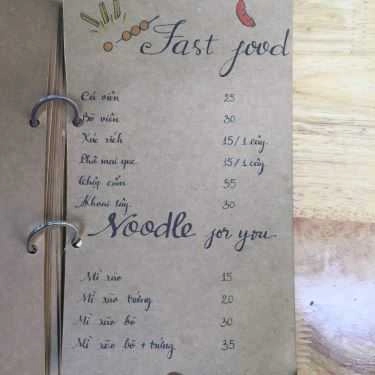 Fast food
Cá viên 25
Bò viên 30
Xúc xích 15/1 cây
Phô mai que 15/1 cây
Thập cẩm 35
Khoai tây 30
Noodle for you
Mì xào 15
Mì xào trứng 20
Mì xào bò 30
Mì xào bò + trứng 35